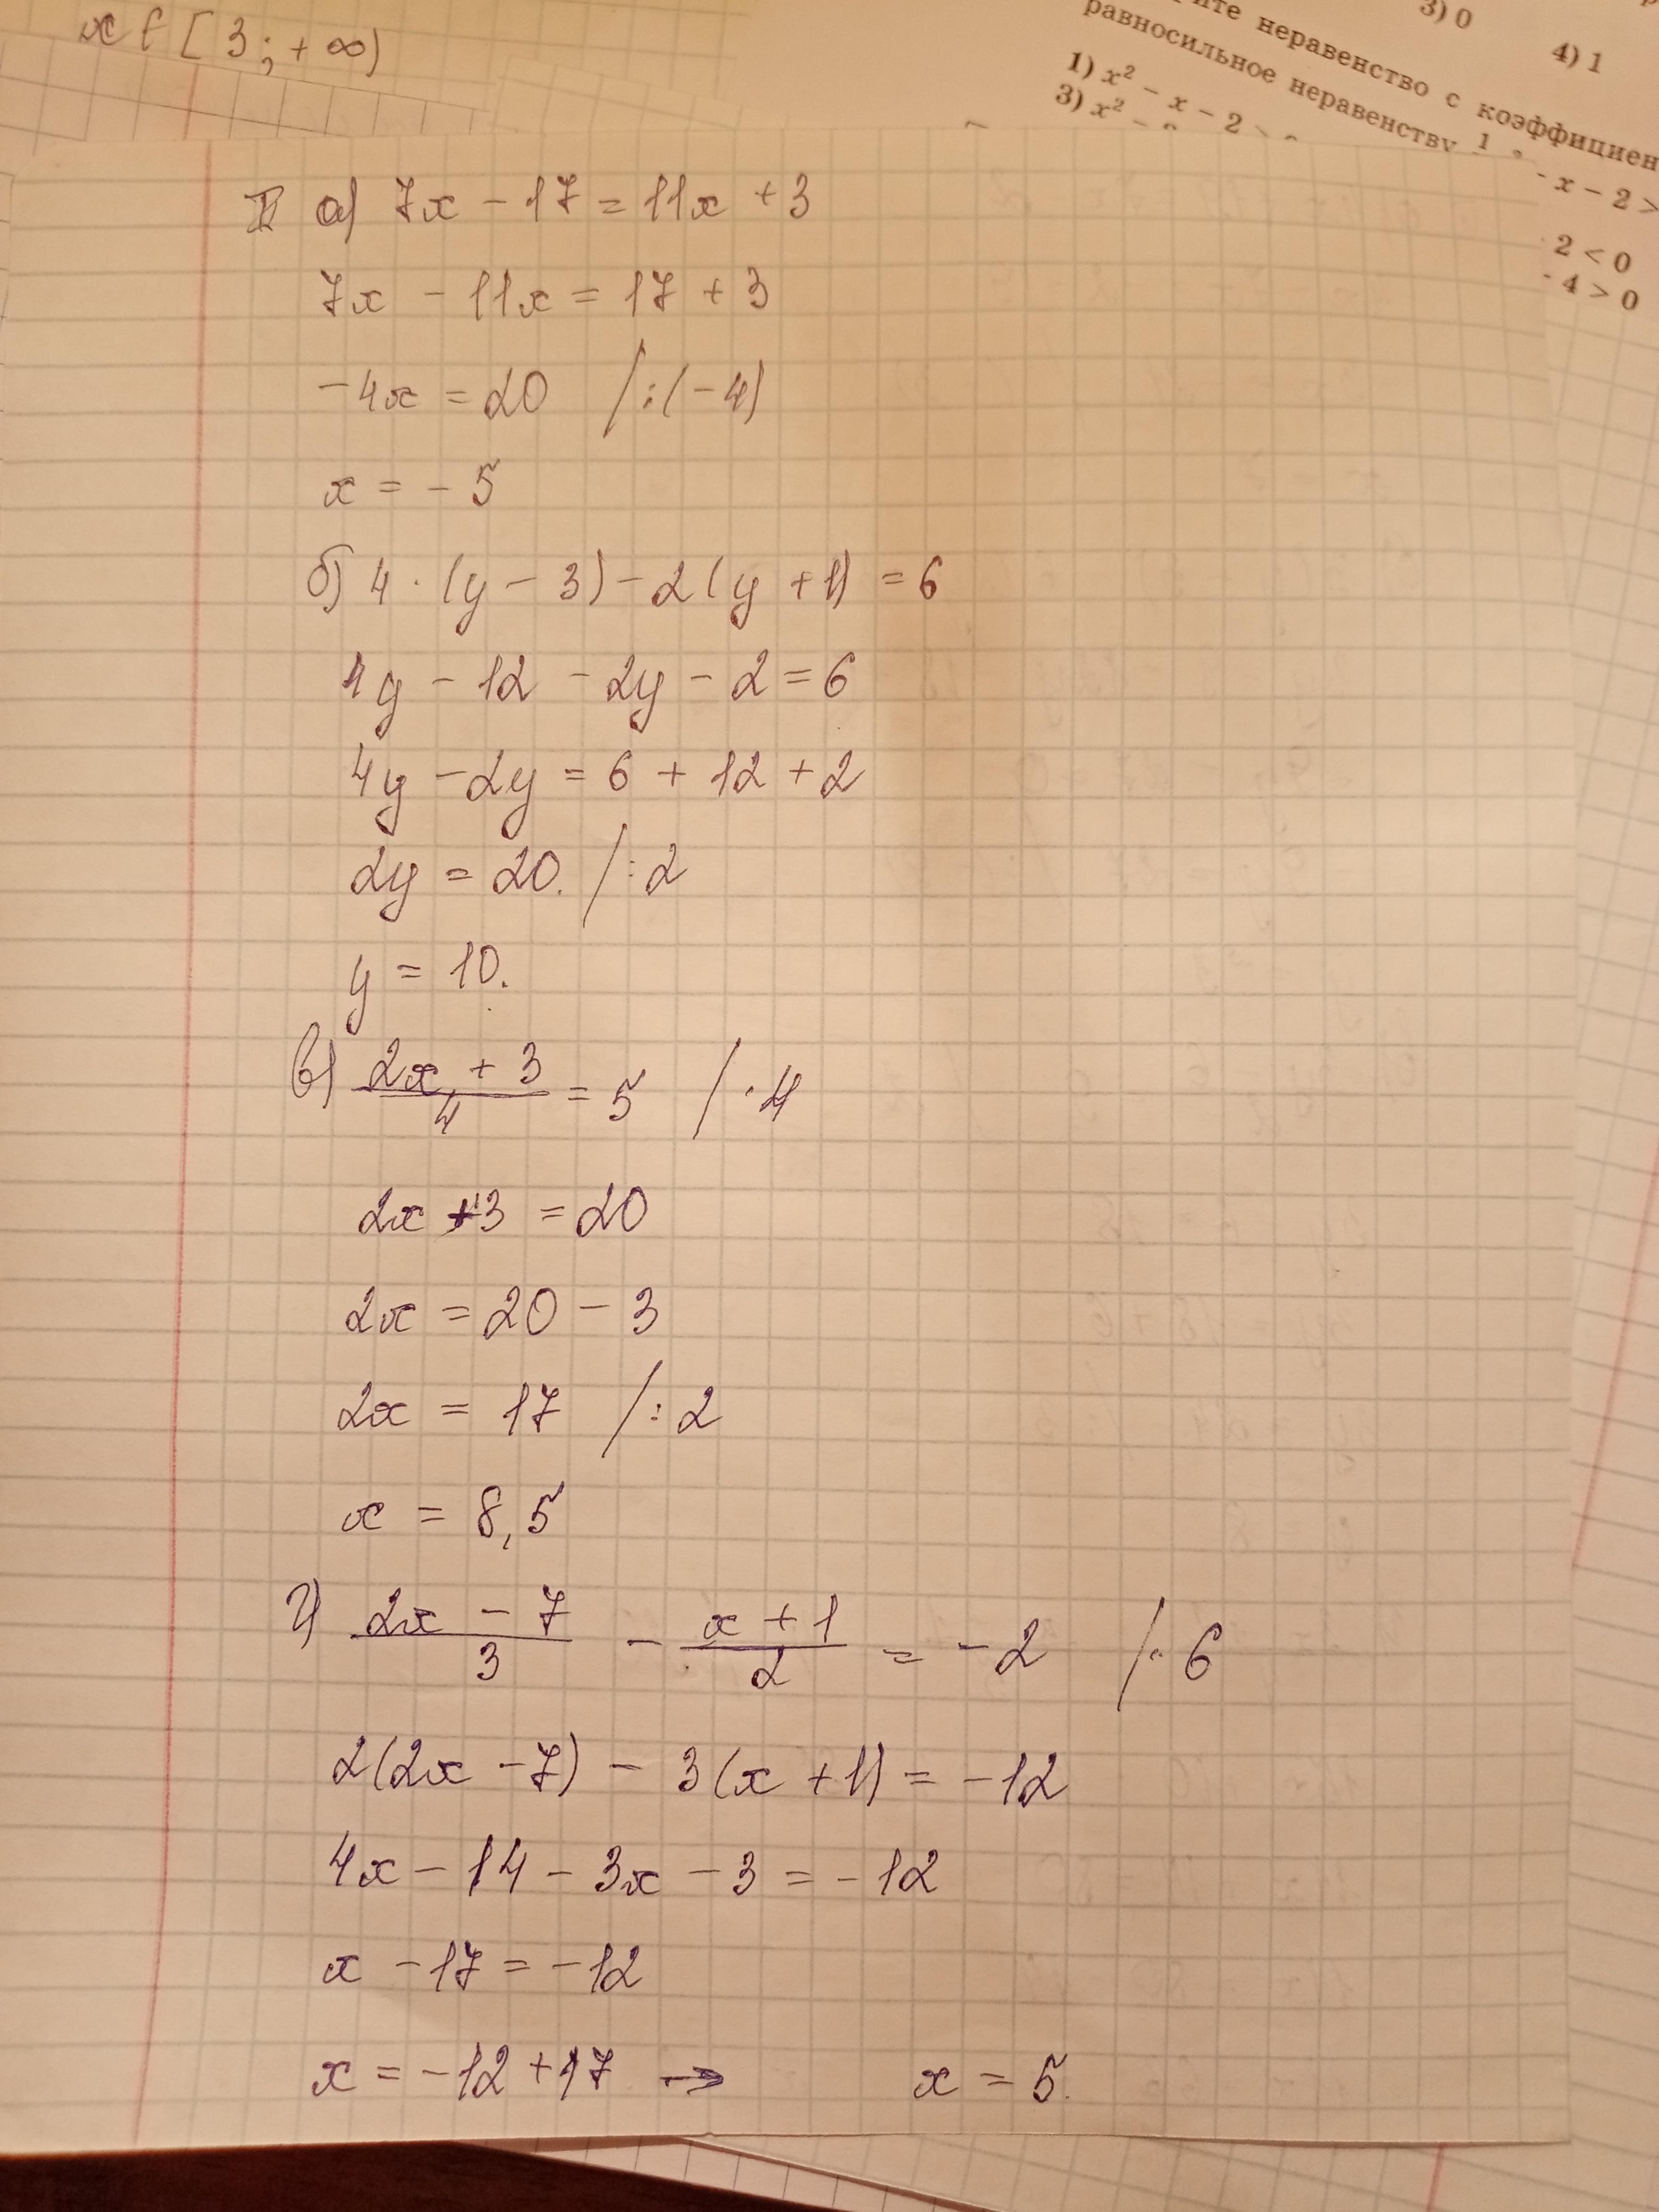 x ∈ [3; +∞)
3) 0
4) 1
неравенство с
равносильное неравенству
1) x² − x − 2
3) x² −
− x − 2 >
2 < 0
− 4 > 0
II а) 7x − 17 = 11x + 3
7x − 11x = 17 + 3
−4x = 20 /:(−4)
x = −5
б) 4·(y − 3) − 2(y + 1) = 6
4y − 12 − 2y − 2 = 6
4y − 2y = 6 + 12 + 2
2y = 20. /:2
y = 10.
в) (2x + 3)/4 = 5 /·4
2x + 3 = 20
2x = 20 − 3
2x = 17 /:2
x = 8,5
г) (2x − 7)/3 − (x + 1)/2 = −2 /·6
2(2x − 7) − 3(x + 1) = −12
4x − 14 − 3x − 3 = −12
x − 17 = −12
x = −12 + 17 → x = 5.